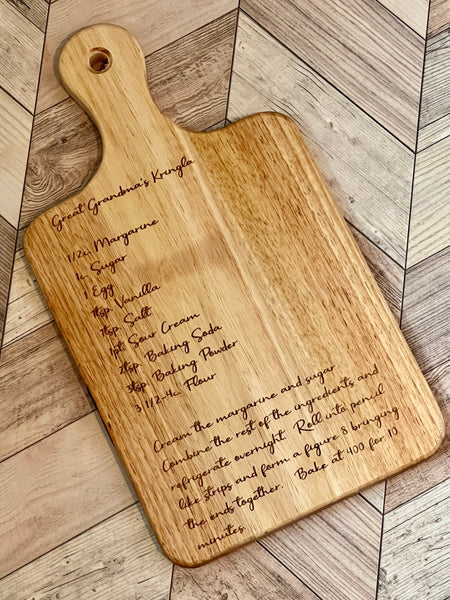 Great Grandma's Kringla
1/2c. Margarine
1c. Sugar
1 Egg
1tsp. Vanilla
1tsp. Salt
1pt. Sour Cream
2tsp. Baking Soda
3tsp. Baking Powder
3 1/2-4c. Flour
Cream the margarine and sugar
Combine the rest of the ingredients and
refrigerate overnight. Roll into pencil
like strips and form a figure 8 bringing
the ends together. Bake at 400 for 10
minutes.